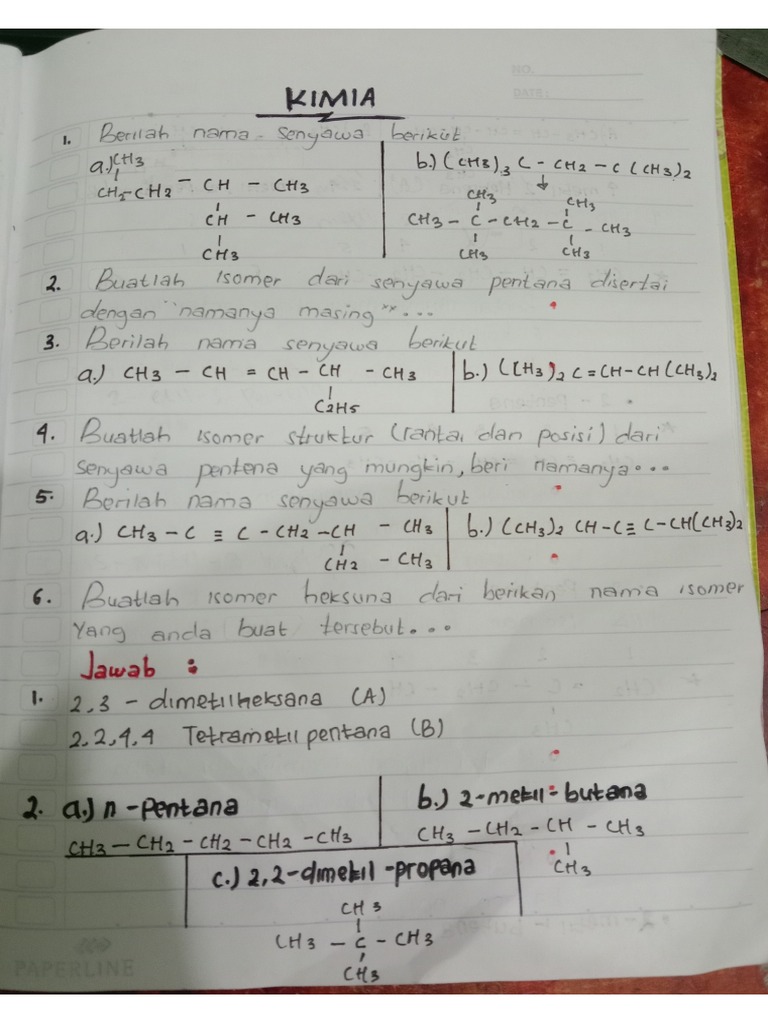 NO.
DATE:
KIMIA
1. Berilah nama senyawa berikut
a.) CH3
|
CH2-CH2 - CH - CH3
|
CH - CH3
|
CH3
b.) (CH3)3 C - CH2 - C (CH3)2
↓
CH3 CH3
CH3 - C - CH2 - C - CH3
| |
CH3 CH3
2. Buatlah Isomer dari senyawa pentana disertai
dengan "namanya masing"...
3. Berilah nama senyawa berikut
a.) CH3 - CH = CH - CH - CH3
|
C2H5
b.) (CH3)2 C = CH-CH (CH3)2
4. Buatlah isomer struktur (rantai dan posisi) dari
senyawa pentena yang mungkin, beri namanya...
5. Berilah nama senyawa berikut
a.) CH3 - C ≡ C - CH2 - CH - CH3
|
CH2 - CH3
b.) (CH3)2 CH-C≡ C-CH(CH3)2
6. Buatlah isomer heksuna dari berikan nama isomer
Yang anda buat tersebut...
Jawab :
1. 2,3 - dimetilheksana (A)
2,2,4,4 Tetrametil pentana (B)
2. a.) n-pentana
CH3 - CH2 - CH2 - CH2 - CH3
b.) 2-metil-butana
CH3 - CH2 - CH - CH3
|
CH3
c.) 2,2-dimetil-propana
CH3
|
CH3 - C - CH3
|
CH3
PAPERLINE